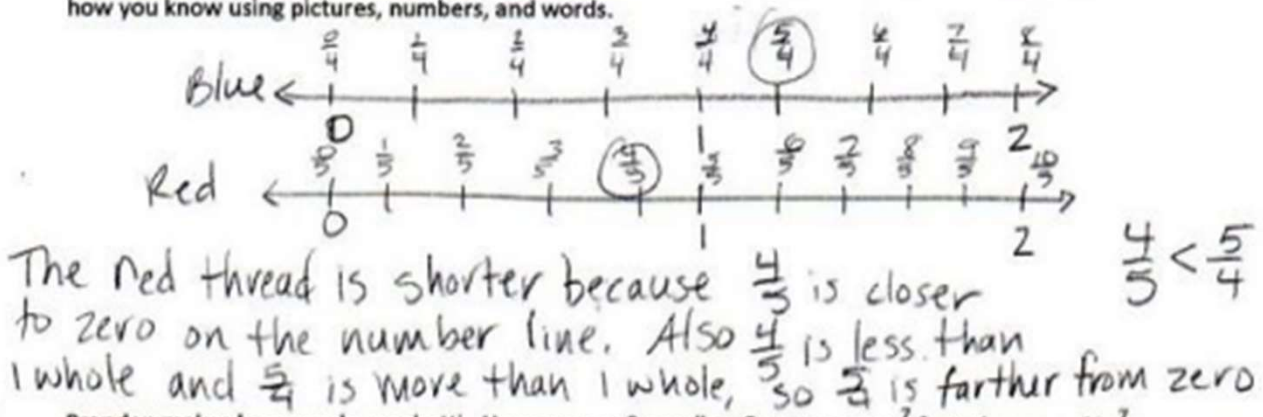 how you know using pictures, numbers, and words.
0/4 1/4 2/4 3/4 4/4 5/4 6/4 7/4 8/4
Blue
0 1 2
0/5 1/5 2/5 3/5 4/5 5/5 6/5 7/5 8/5 9/5 10/5
Red
0 1 2
4/5 < 5/4
The red thread is shorter because 4/5 is closer
to zero on the number line. Also 4/5 is less than
1 whole and 5/4 is more than 1 whole, so 5/4 is farther from zero